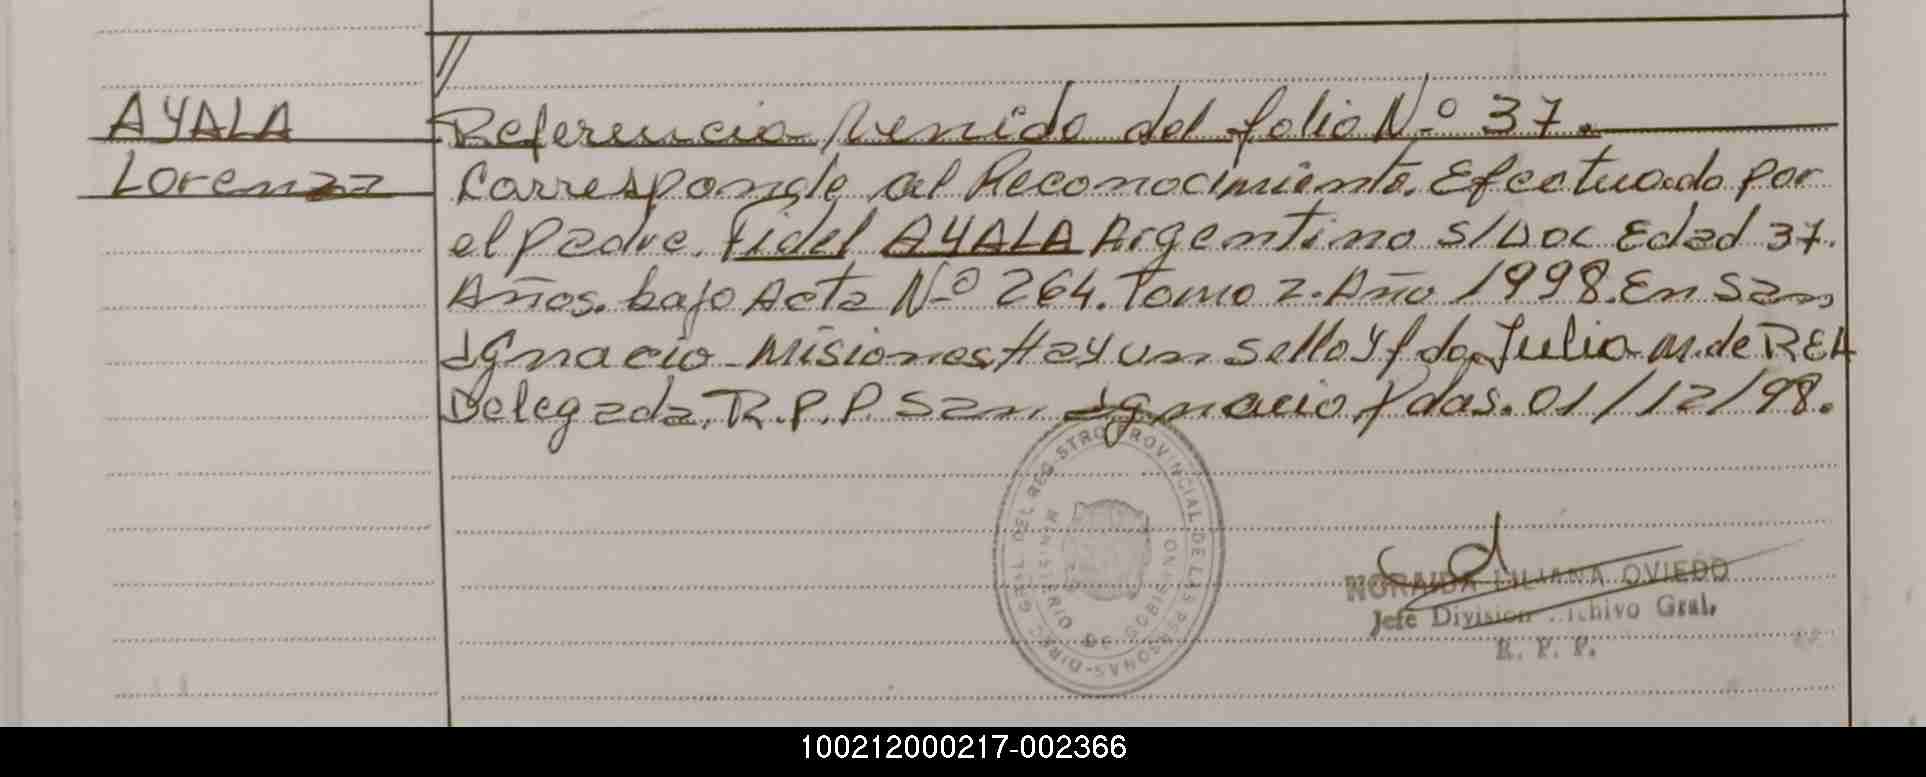 //
AYALA Referencia Venida del folio Nº 37.
Lorenza Corresponde al Reconocimiento. Efectuado por
el padre. Fidel AYALA Argentino S/Doc Edad 37.
Años. bajo Acta Nº 264. Tomo 2. Año 1998. En San
Ignacio - Misiones Hay un sello y fdo. Julia M. de REA
Delegada. R.P.P. San Ignacio Pdas. 01/12/98.
DIREC. GRAL. DEL REGISTRO PROVINCIAL DE LAS PERSONAS
MINISTERIO DE GOBIERNO
NORAIDA LILIANA OVIEDO
Jefe Division Archivo Gral.
R. P. P.
100212000217-002366